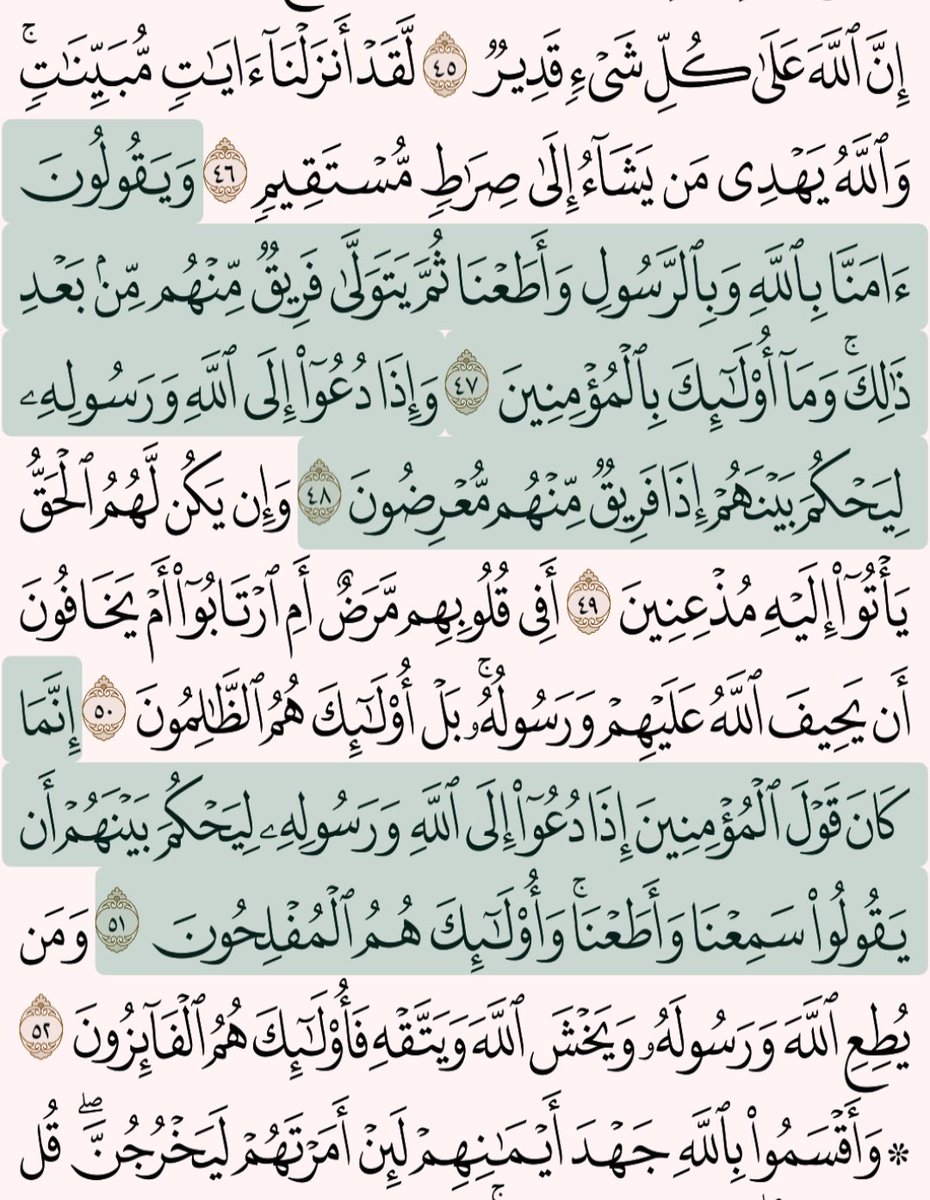 إِنَّ ٱللَّهَ عَلَىٰ كُلِّ شَىْءٍ قَدِيرٌ ٤٥ لَّقَدْ أَنزَلْنَآ ءَايَـٰتٍ مُّبَيِّنَـٰتٍ ۚ
وَٱللَّهُ يَهْدِى مَن يَشَآءُ إِلَىٰ صِرَٰطٍ مُّسْتَقِيمٍ ٤٦ وَيَقُولُونَ
ءَامَنَّا بِٱللَّهِ وَبِٱلرَّسُولِ وَأَطَعْنَا ثُمَّ يَتَوَلَّىٰ فَرِيقٌ مِّنْهُم مِّنۢ بَعْدِ
ذَٰلِكَ ۚ وَمَآ أُو۟لَـٰٓئِكَ بِٱلْمُؤْمِنِينَ ٤٧ وَإِذَا دُعُوٓا۟ إِلَى ٱللَّهِ وَرَسُولِهِۦ
لِيَحْكُمَ بَيْنَهُمْ إِذَا فَرِيقٌ مِّنْهُم مُّعْرِضُونَ ٤٨ وَإِن يَكُن لَّهُمُ ٱلْحَقُّ
يَأْتُوٓا۟ إِلَيْهِ مُذْعِنِينَ ٤٩ أَفِى قُلُوبِهِم مَّرَضٌ أَمِ ٱرْتَابُوٓا۟ أَمْ يَخَافُونَ
أَن يَحِيفَ ٱللَّهُ عَلَيْهِمْ وَرَسُولُهُۥ ۚ بَلْ أُو۟لَـٰٓئِكَ هُمُ ٱلظَّـٰلِمُونَ ٥٠ إِنَّمَا
كَانَ قَوْلَ ٱلْمُؤْمِنِينَ إِذَا دُعُوٓا۟ إِلَى ٱللَّهِ وَرَسُولِهِۦ لِيَحْكُمَ بَيْنَهُمْ أَن
يَقُولُوا۟ سَمِعْنَا وَأَطَعْنَا ۚ وَأُو۟لَـٰٓئِكَ هُمُ ٱلْمُفْلِحُونَ ٥١ وَمَن
يُطِعِ ٱللَّهَ وَرَسُولَهُۥ وَيَخْشَ ٱللَّهَ وَيَتَّقْهِ فَأُو۟لَـٰٓئِكَ هُمُ ٱلْفَآئِزُونَ ٥٢
* وَأَقْسَمُوا۟ بِٱللَّهِ جَهْدَ أَيْمَـٰنِهِمْ لَئِنْ أَمَرْتَهُمْ لَيَخْرُجُنَّ ۖ قُل